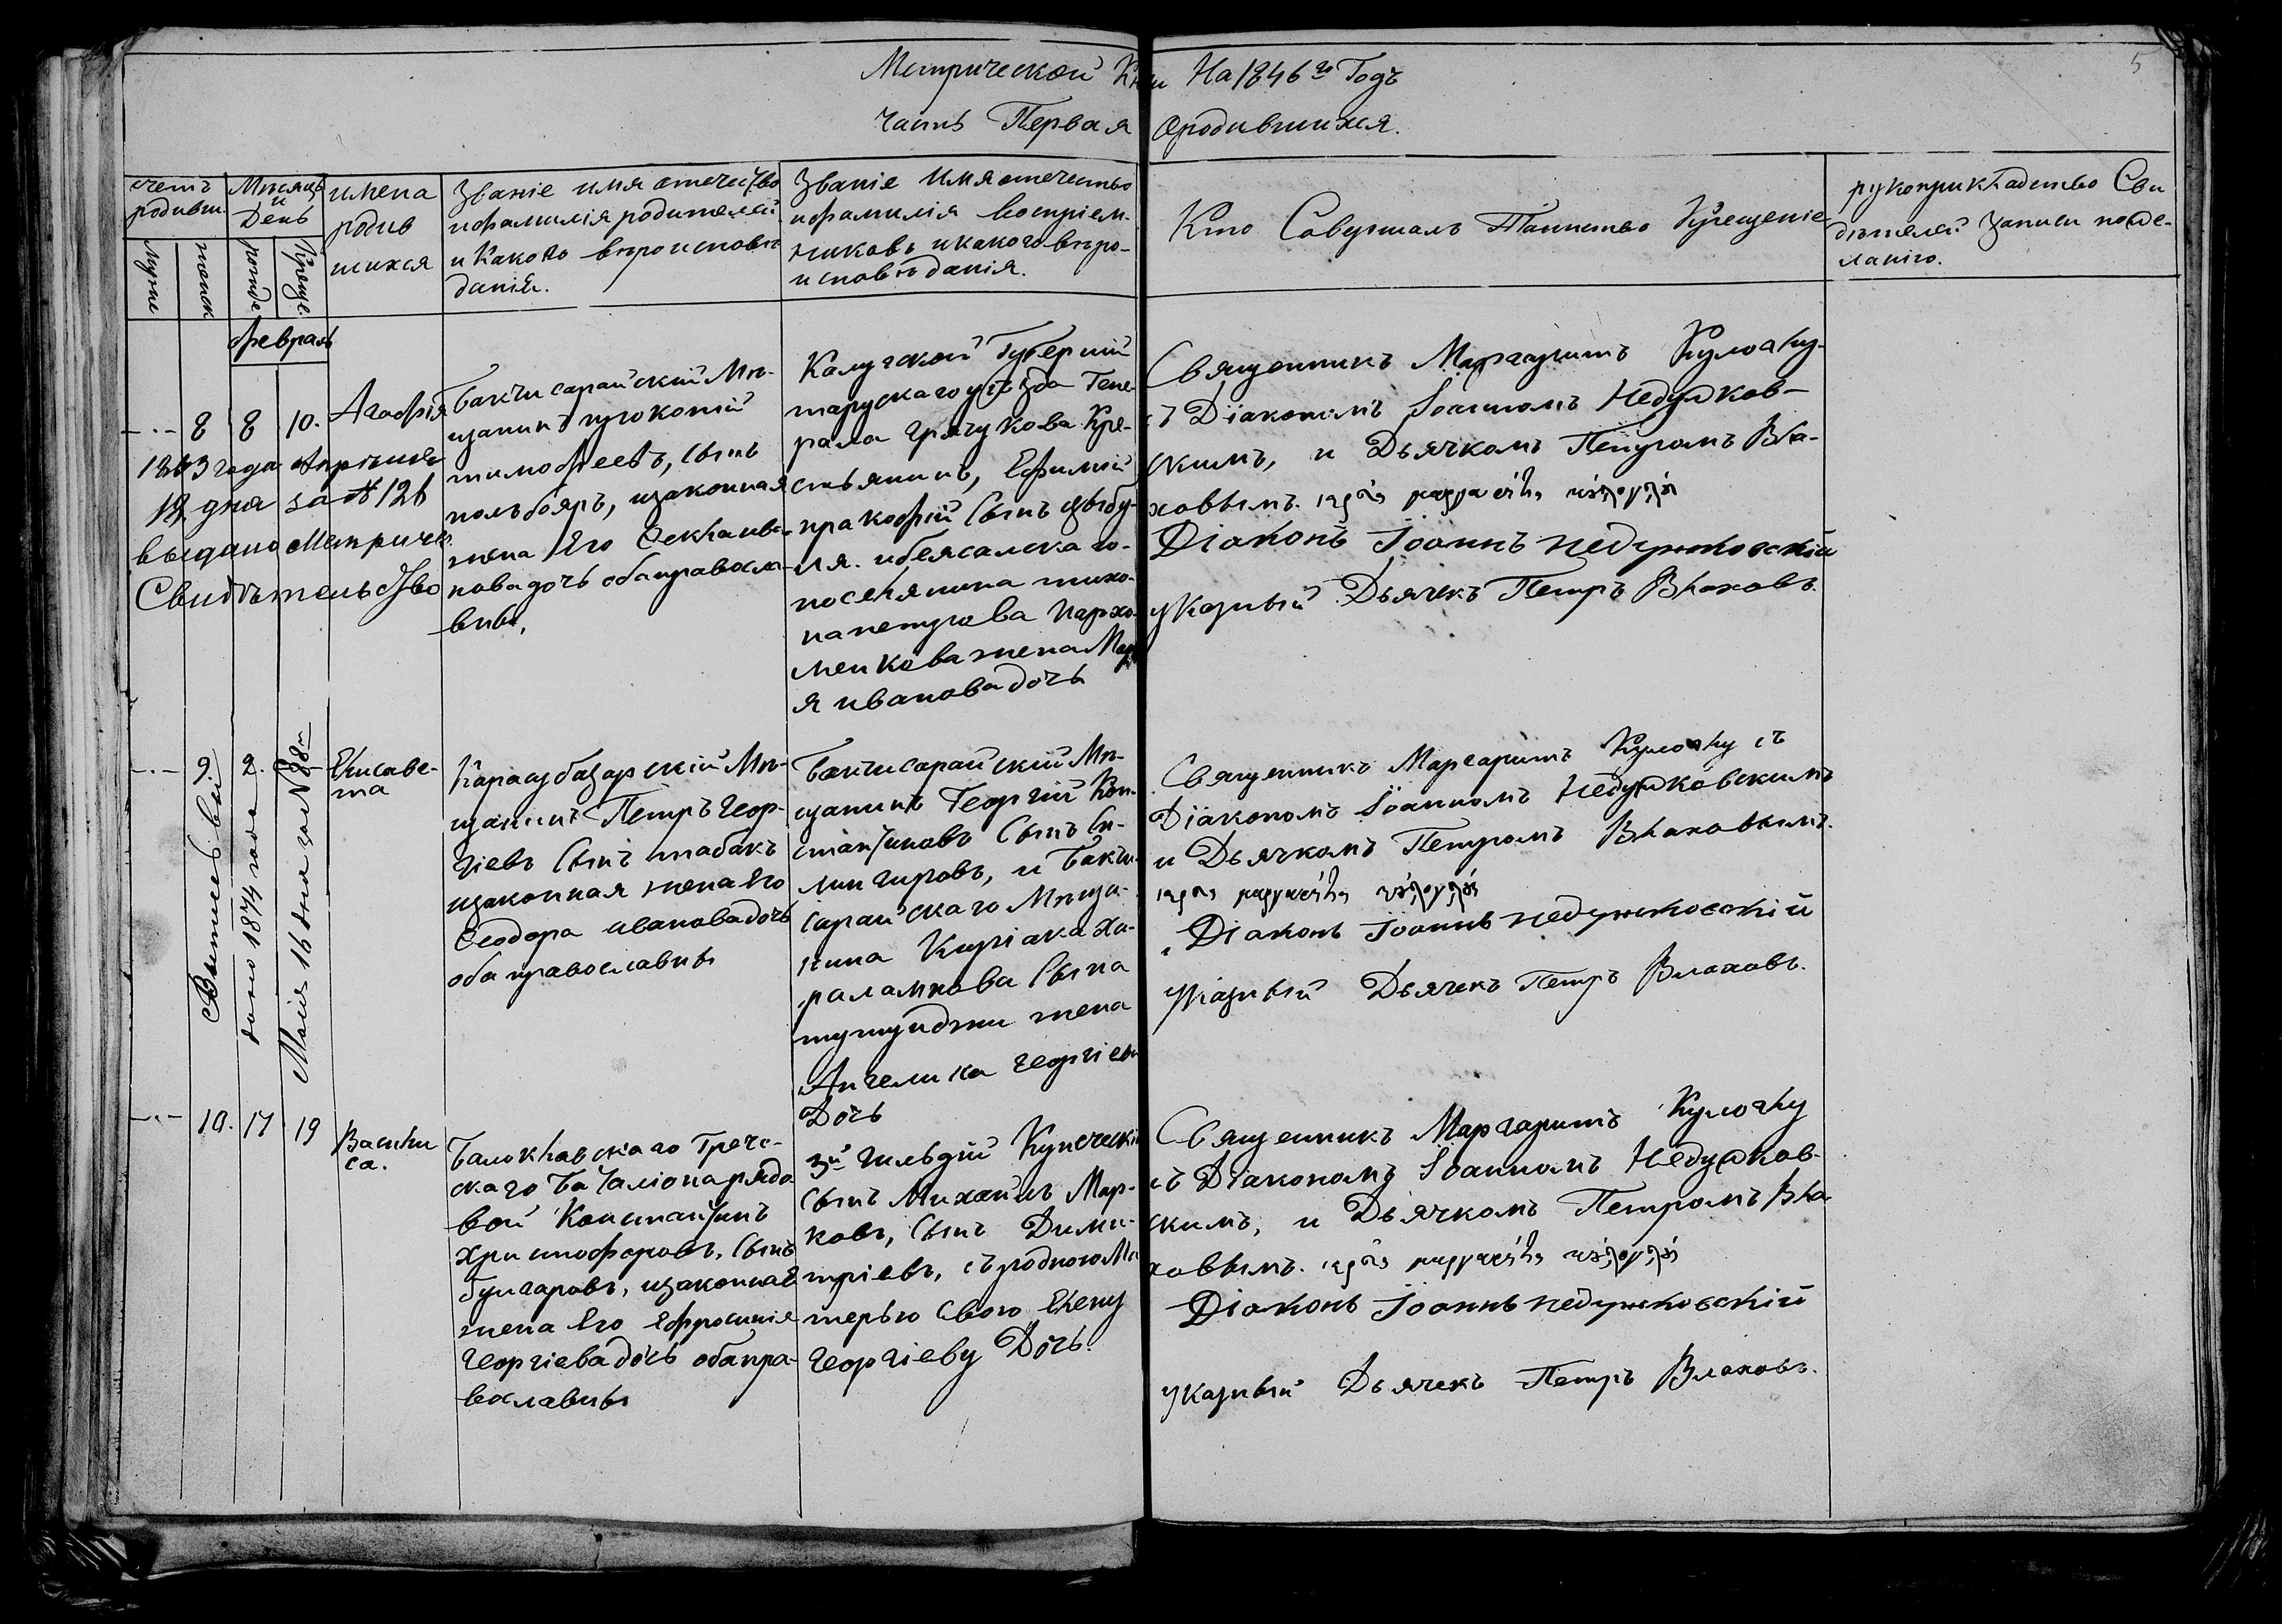 Метрической Кни На 1846го Годъ
5
часть Первая Ородившихся.
счетъ родивш.
Мѣсяцъ и День
имена родив шихся
Званіе имя отечество
ифамилія родителей
и Каково вѣроисповѣ
данія.
Званіе Имя отечество
ифамилія восприем-
никовъ икакого вѣро-
исповѣданія.
Кто Совершалъ Таинство Крещеніе
рукоприкладство Сви
дѣтелей Записи поже-
ланію.
Мужс
женск
рожде
Креще.
Февраль
8 8 10.
Агафія
1863 года Апрѣля
12 дня за № 126
выдано Метриче
Свидѣтельство
Бакчисарайский Мѣ-
щанинъ прокопій
тимофеевъ, сынъ
польбояръ, изаконная
жена Его Еекла ива-
нова дочь оба правосла-
вны,
Калужской Губерніи
тарускаго уѣзда Гене-
рала Грязукова Кре-
стьянинъ, Ефимій
пракофій Сынъ цыбу-
ля. ибеясалскаго-
поселянина тихо-
на петрова пархо-
менкова жена Мар
я иванова дочь
Священникъ Маргаритъ Кумоглу-
съ Діакономъ Іоанномъ Недужков-
скимъ, и Дьячкомъ Петромъ Вла-
ховымъ.
Діаконъ Іоаннъ недужковскій
указный Дьячекъ Петръ Влаховъ.
9. 2.
Свѣтелсьвы
дано 1874 года
Маія 16 дня за № 88м
Елисаве-
та
Карасубазарскій Мѣ-
щанинъ Петръ Геор-
гіевъ Сынъ табакъ
изаконная жена Его
Өеодора иванова дочь
оба православны
Бакчисарайский Мѣ-
щанинъ Георгій Кон-
стантиновъ Сынъ Си-
мигировъ, и Бакчи-
сарайскаго Мѣща-
нина Киріака Ха-
раламнова Сына
тутунджи жена
Ангелика Георгіева
Дочь
Священникъ Маргаритъ Кумоглу съ
Діакономъ Іоанномъ Недужковскимъ
и Дьячкомъ Петромъ Влаховымъ.
Діаконъ Іоаннъ недужковскій
указный Дьячекъ Петръ Влаховъ.
10. 17 19
Васили
са.
Балоклавскаго Грече-
скаго Баталіона рядо
вой Константинъ
христофоровъ, Сынъ
булгаровъ, изаконная
жена Его Ефросинія
Георгіева дочь оба пра-
вославны
3й гильдій Купеческій
Сынъ Михаилъ Мар-
ковъ, Сынъ Дими-
тріевъ, съ родною Ма
терью Свою Елену
Георгіеву Дочь.
Священникъ Маргаритъ Кумоглу
съ Діакономъ Іоанномъ Недужков-
скимъ, и Дьячкомъ Петромъ Вла-
ховымъ.
Діаконъ Іоаннъ недужковскій
указный Дьячекъ Петръ Влаховъ.